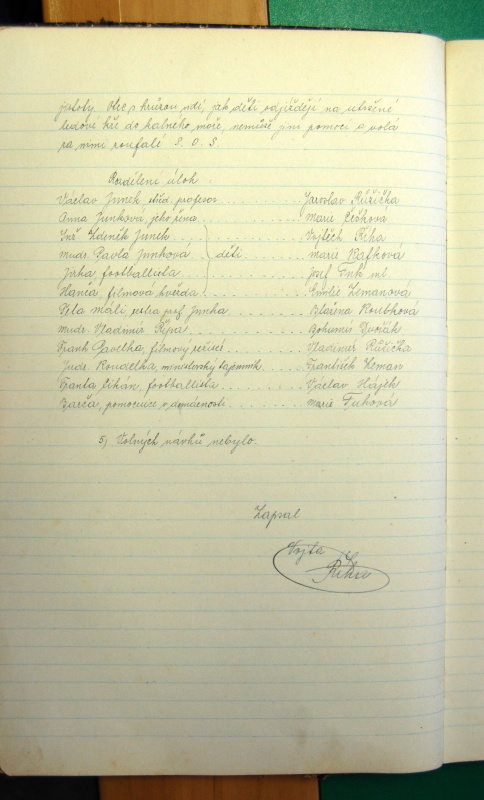 jistoty. Otec s hrůzou vidí, jak děti odjíždějí na utržené
ledové kře do kalného moře, nemůže jim pomoci a volá
za nimi zoufale S. O. S.
Rozdělení úloh
Václav Junek, střed. profesor ........ Jaroslav Růžička
Anna Junková, jeho žena ........ Marie Ceškova
Inž Zdeněk Junek ... Vojtěch Říha
Mudr. Pavla Junková } děti ...... Marie Kafková
Jirka footballista ........ Josef Ink ml
Hanka, filmová hvězda ........ Emilie Zemanová
Péťa málí sestra prof. Junka ........ Blažena Koubková
Mudr. Vladimír Řípa ........ Bohumír Dvořák
Frank Pavelka, filmový režisér ........ Vladimír Růžička
Judr. Koudelka, ministerský tajemník ........ František Zeman
Franta Cihán, footballista ........ Václav Hájek
Barča, pomocnice v domácnosti ........ Marie Fuková
5) Volných návhů nebylo.
Zapsal
Vojta
Říha